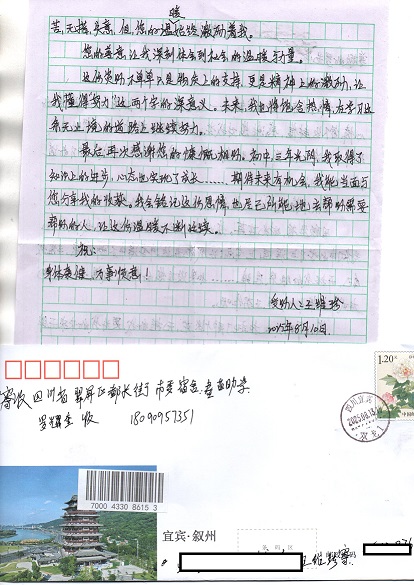 暖
苦，无援，失意，但，您的温暖始终激励着我。
您的善意，让我深刻体会到社会的温暖与力量。
这份资助不单单只是物质上的支持，更是精神上的激励，让
我懂得"努力"这两个字的深意义。未来，我也将饱含热情，在学习这
条无止境的道路上继续努力。
最后，再次感谢您的慷慨相助。初中三年光阴，我取得了
知识上的进步，心态也实现了成长……期待未来有机会，我能当面与
您分享我的收获。我会铭记这份恩情，也尽己所能地去帮助需要
帮助的人，让这份温暖不断延续。
祝：
身体康健，万事顺意！
受助人：王维珍
2025年8月10日
1.20元
四川宜宾
2025.08.13
四川省 翠屏区 都长街 市委宿舍
罗耀全 收 18090957351
7000 4330 8615 3
宜宾·叙州